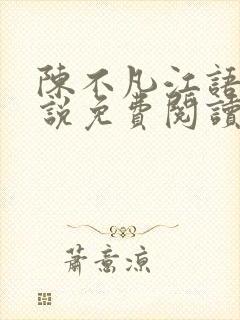 陳不凡江語
說免費閱讀
蕭意涼